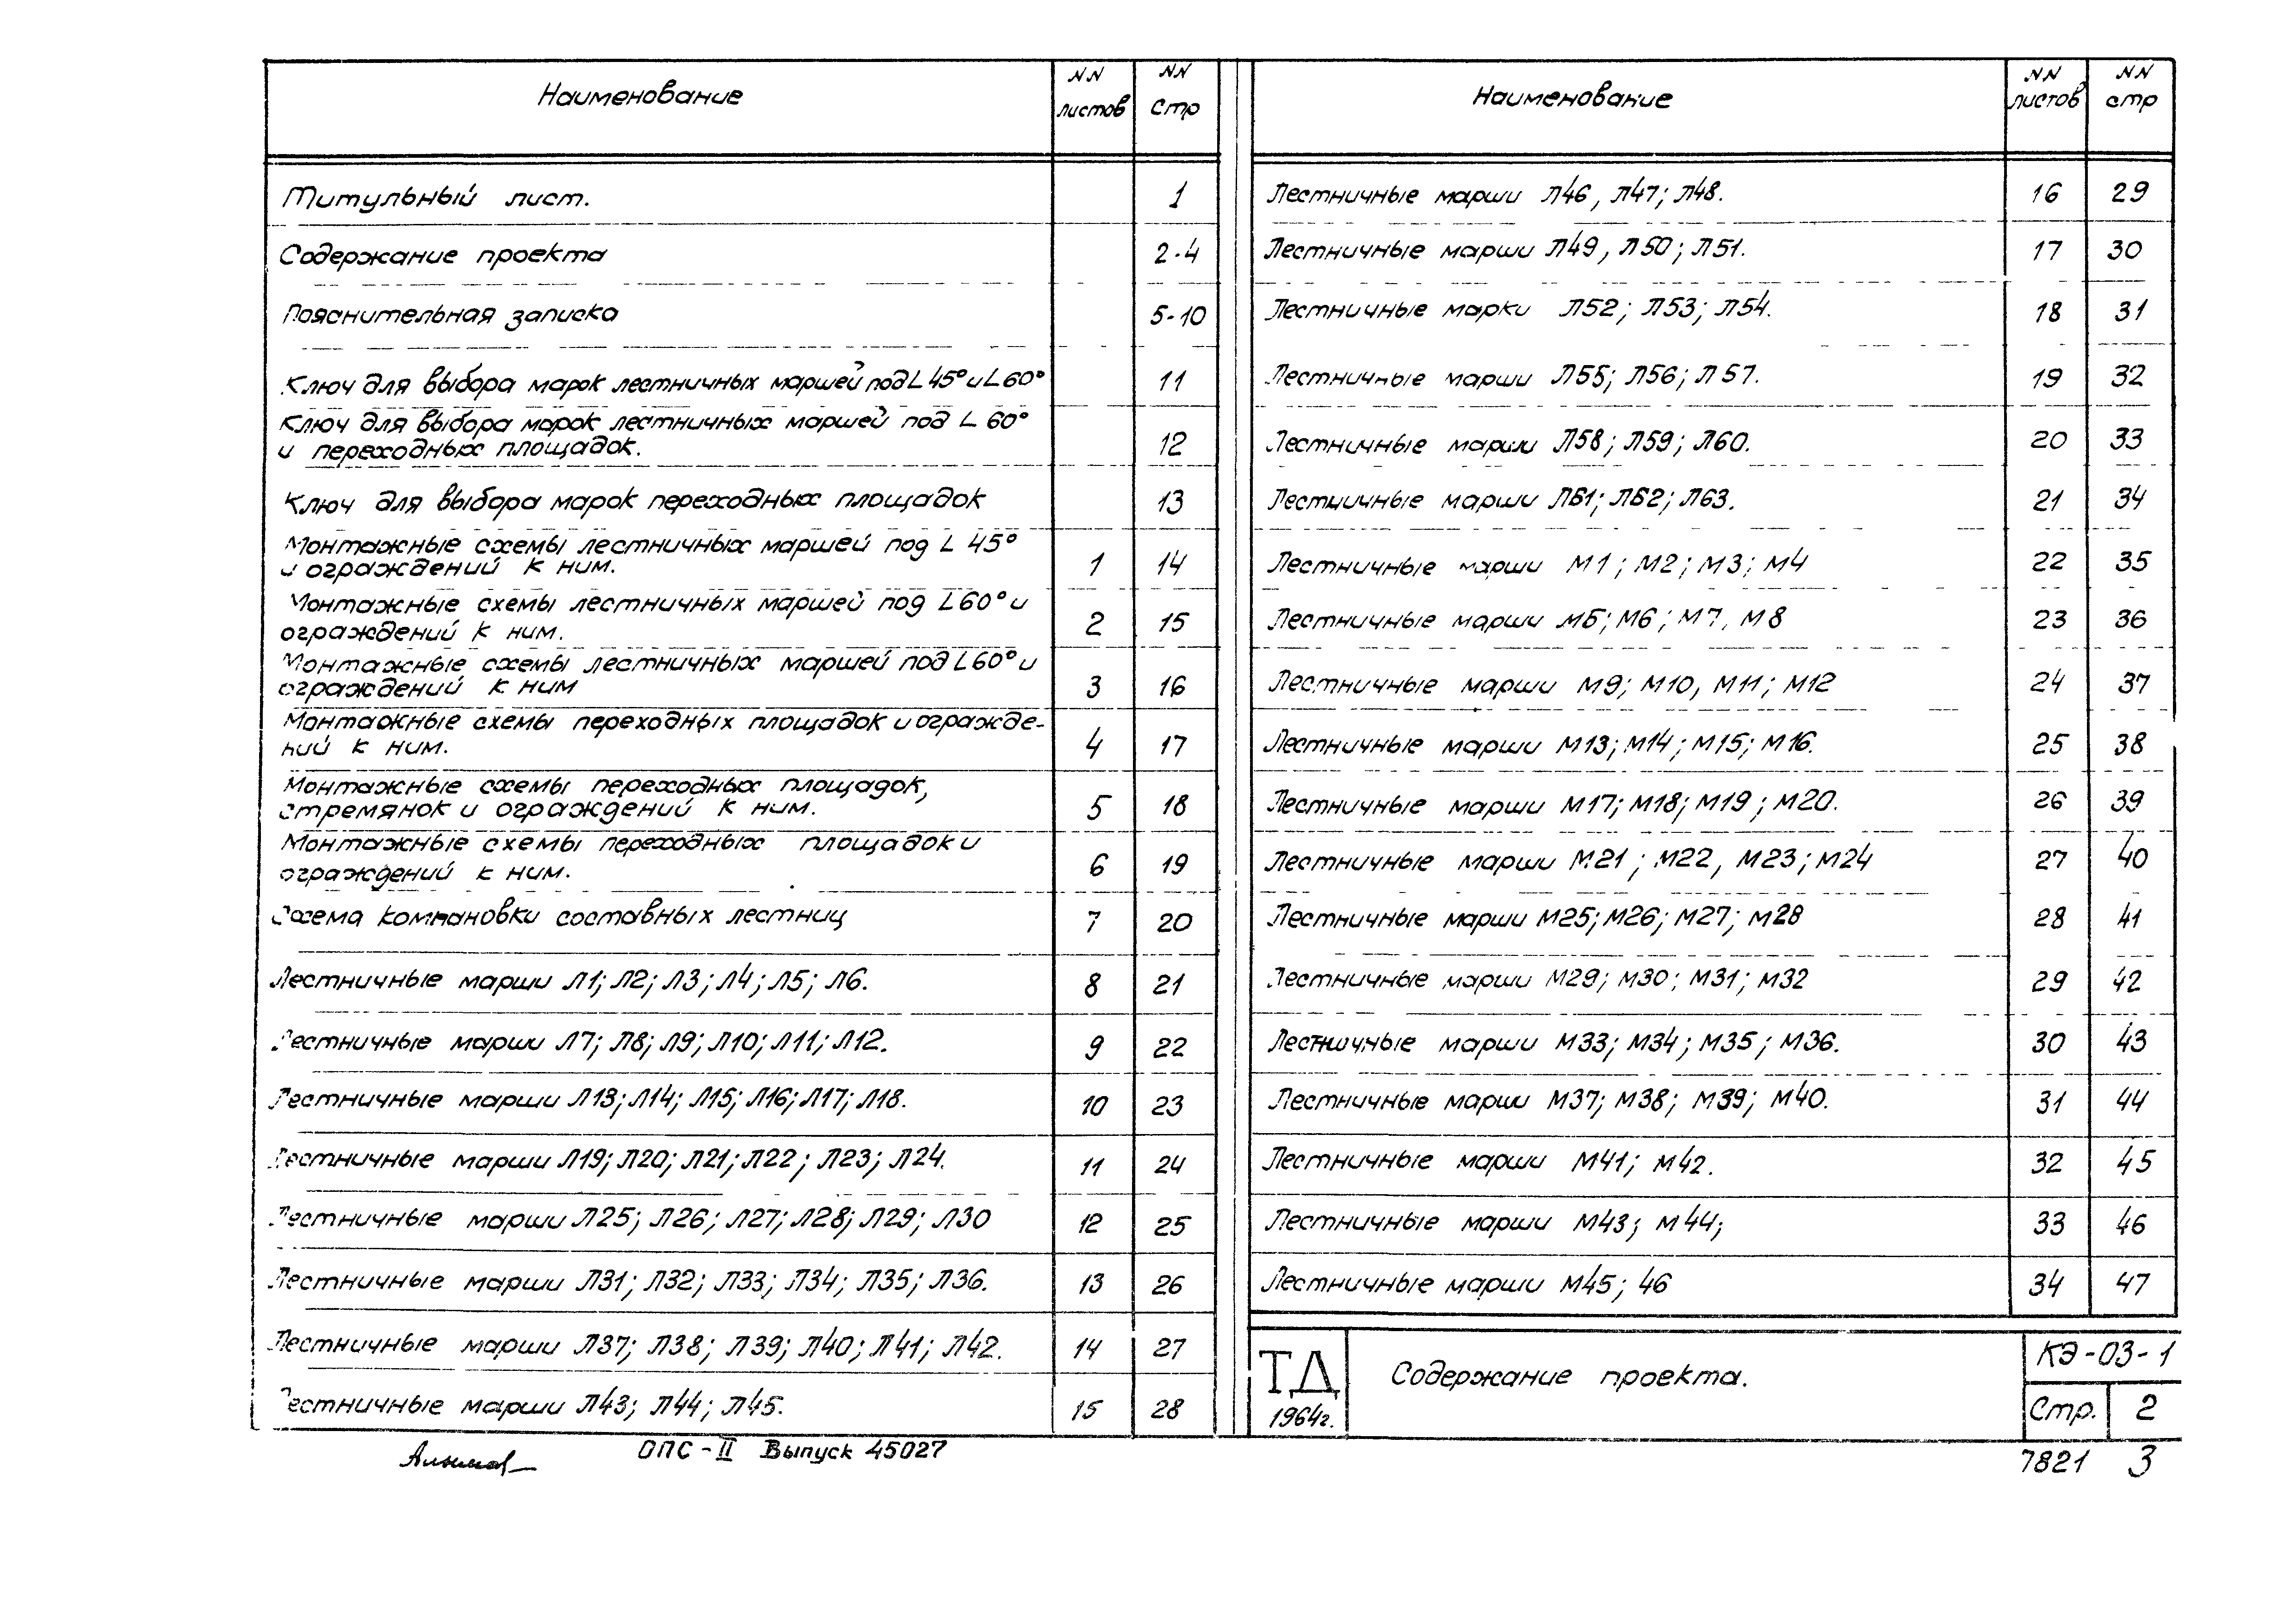 Наименование NN листов NN стр
Титульный лист. 1
Содержание проекта 2-4
Пояснительная записка 5-10
Ключ для выбора марок лестничных маршей под L 45° и L 60° 11
Ключ для выбора марок лестничных маршей под L 60°
и переходных площадок. 12
Ключ для выбора марок переходных площадок 13
Монтажные схемы лестничных маршей под L 45°
и ограждений к ним. 1 14
Монтажные схемы лестничных маршей под L 60° и
ограждений к ним. 2 15
Монтажные схемы лестничных маршей под L 60° и
ограждений к ним 3 16
Монтажные схемы переходных площадок и огражде-
ний к ним. 4 17
Монтажные схемы переходных площадок,
стремянок и ограждений к ним. 5 18
Монтажные схемы переходных площадок и
ограждений к ним. 6 19
Схема компановки составных лестниц 7 20
Лестничные марши Л1; Л2; Л3; Л4; Л5; Л6. 8 21
Лестничные марши Л7; Л8; Л9; Л10; Л11; Л12. 9 22
Лестничные марши Л13; Л14; Л15; Л16; Л17; Л18. 10 23
Лестничные марши Л19; Л20; Л21; Л22; Л23; Л24. 11 24
Лестничные марши Л25; Л26; Л27; Л28; Л29; Л30 12 25
Лестничные марши Л31; Л32; Л33; Л34; Л35; Л36. 13 26
Лестничные марши Л37; Л38; Л39; Л40; Л41; Л42. 14 27
Лестничные марши Л43; Л44; Л45. 15 28
Наименование NN листов NN стр
Лестничные марши Л46, Л47; Л48. 16 29
Лестничные марши Л49, Л50; Л51. 17 30
Лестничные марки Л52; Л53; Л54. 18 31
Лестничные марши Л55; Л56; Л57. 19 32
Лестничные марши Л58; Л59; Л60. 20 33
Лестничные марши Л61; Л62; Л63. 21 34
Лестничные марши М1; М2; М3; М4 22 35
Лестничные марши М5; М6; М7, М8 23 36
Лестничные марши М9; М10, М11; М12 24 37
Лестничные марши М13; М14; М15; М16. 25 38
Лестничные марши М17; М18; М19; М20. 26 39
Лестничные марши М21; М22, М23; М24 27 40
Лестничные марши М25; М26; М27; М28 28 41
Лестничные марши М29; М30; М31; М32 29 42
Лестничные марши М33; М34; М35; М36. 30 43
Лестничные марши М37; М38; М39; М40. 31 44
Лестничные марши М41; М42. 32 45
Лестничные марши М43; М44; 33 46
Лестничные марши М45; 46 34 47
ТД
1964г.
Содержание проекта.
КЭ-03-1
Стр. 2
ОПС-II Выпуск 45027
7821 3